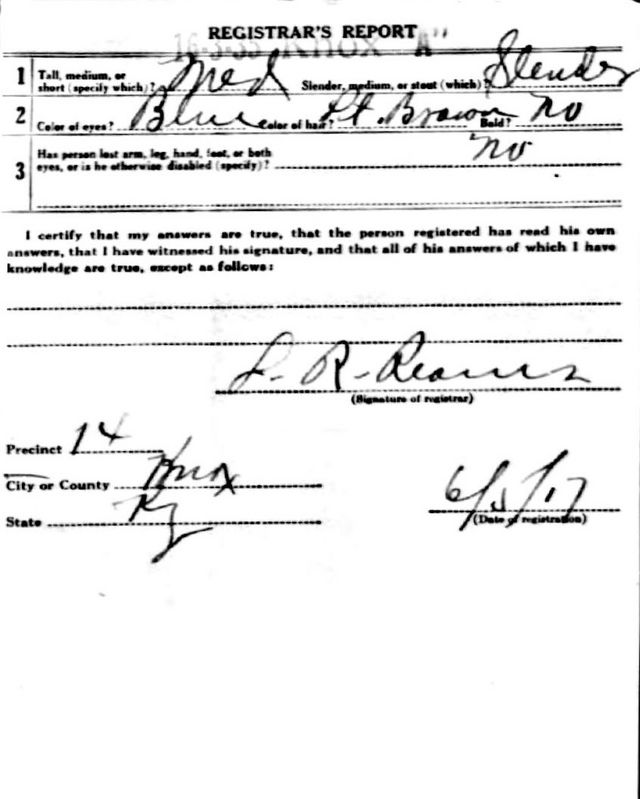 REGISTRAR'S REPORT
1 Tall, medium, or short (specify which)? Med Slender, medium, or stout (which)? Slender
2 Color of eyes? Blue Color of hair? Lt. Brown Bald? No
3 Has person lost arm, leg, hand, foot, or both eyes, or is he otherwise disabled (specify)? No
I certify that my answers are true, that the person registered has read his own
answers, that I have witnessed his signature, and that all of his answers of which I have
knowledge are true, except as follows:
L. R. Reams
(Signature of registrar)
Precinct 14
City or County Knox
State Ky
6/5/17
(Date of registration)